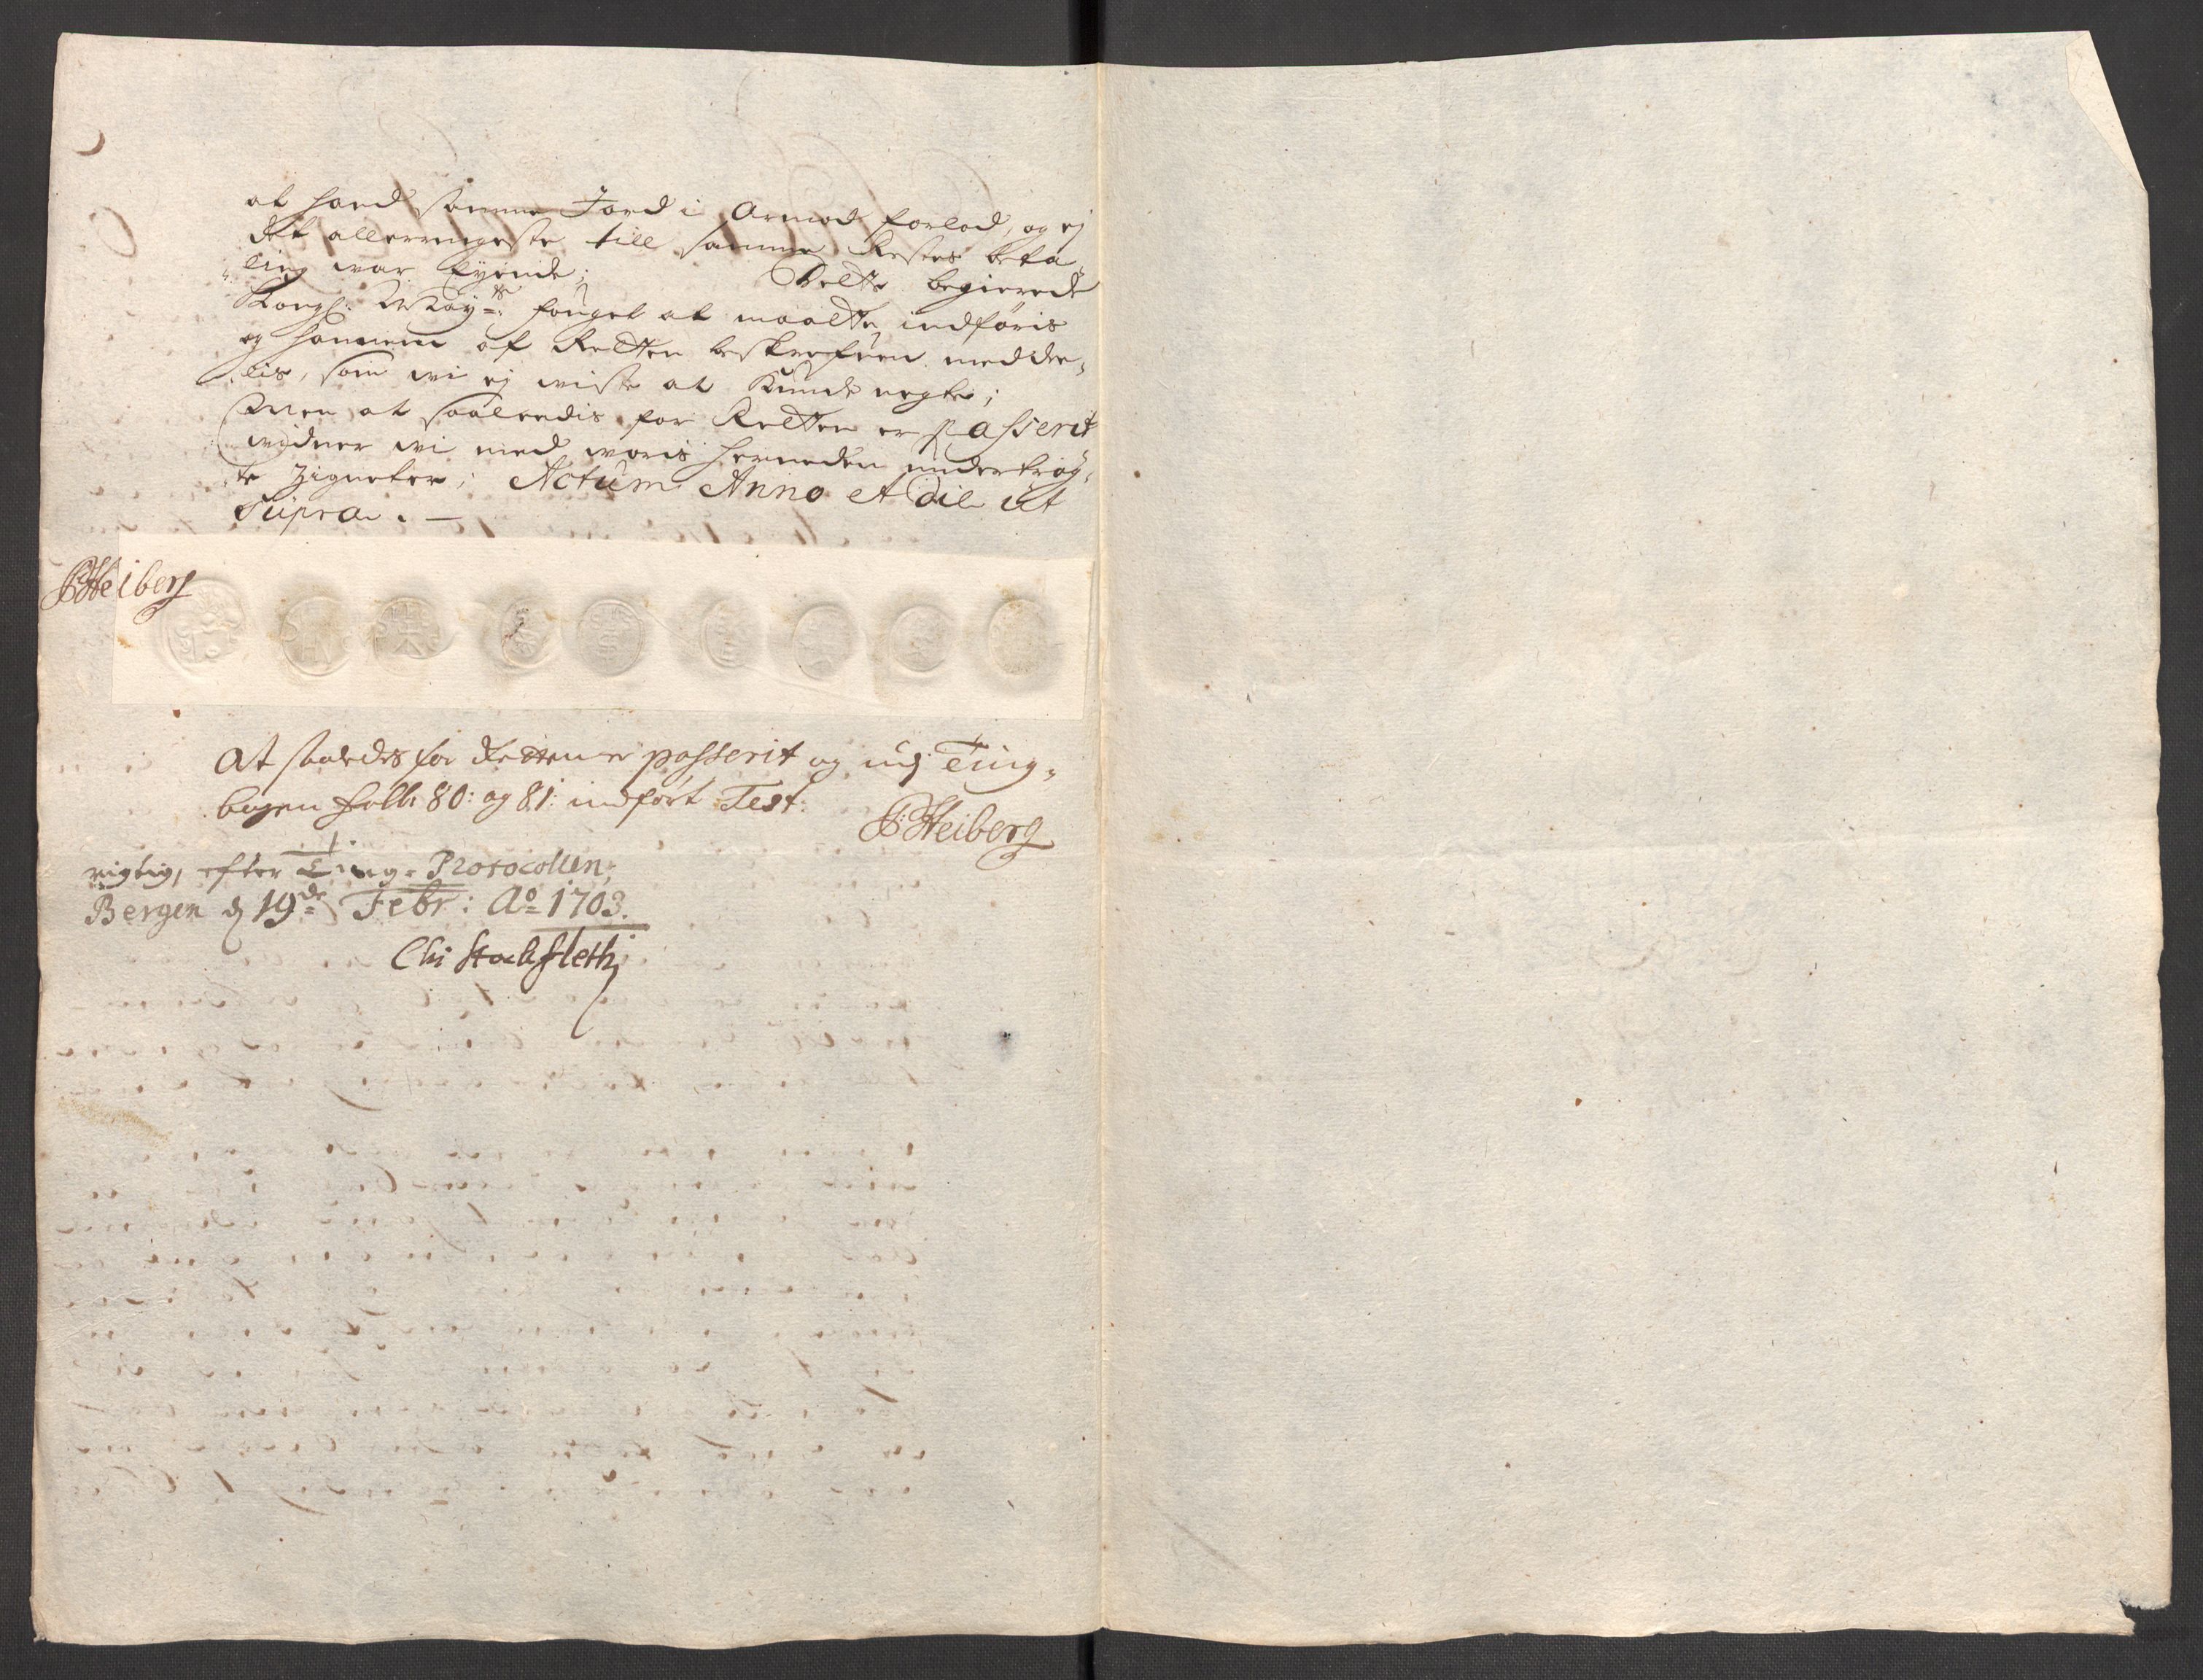 at hand samme Jord i Armod forlod, og ej
det allerringeste till samme Restes beta„
„ling war Eyende; Dette begierede
Kongl: May:ts fouget at maatte indføris
og hannem af Retten beskrefuen meddee„
„lis, som wi ej wiste at Kunde negte;
Men at saaleedis for Retten er passerit
widner wi med woris herneden undertrøg„
te Zigneter; Actum Anno et Die ut
supra. —
PHeiberg
At saaledes for Retten er passerit og udj Ting„
bogen foll: 80: og 81: indført Test:
P:Heiberg
rigtig, efter Ting-Protocollen;
Bergen d 19de Febr: Ao 1703.
Chr Stockfleth